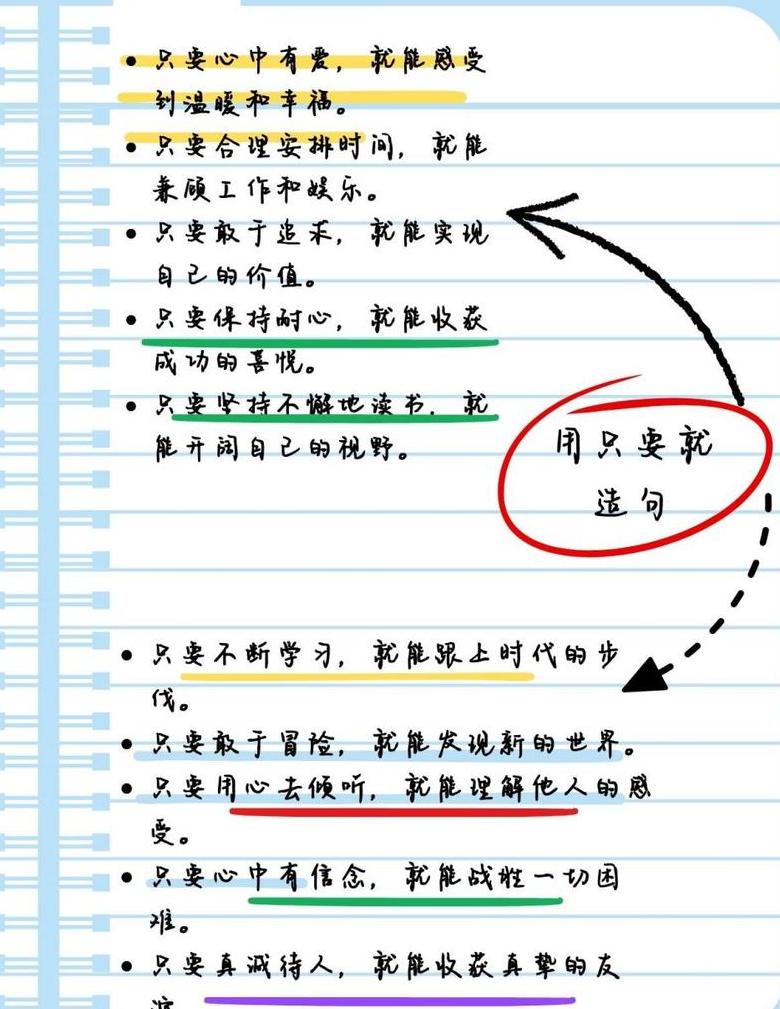 只要心中有爱，就能感受
到温暖和幸福。
只要合理安排时间，就能
兼顾工作和娱乐。
只要敢于追求，就能实现
自己的价值。
只要保持耐心，就能收获
成功的喜悦。
只要坚持不懈地读书，就
能开阔自己的视野。
用只要就
造句
只要不断学习，就能跟上时代的步
伐。
只要敢于冒险，就能发现新的世界。
只要用心去倾听，就能理解他人的感
受。
只要心中有信念，就能战胜一切困
难。
只要真诚待人，就能收获真挚的友